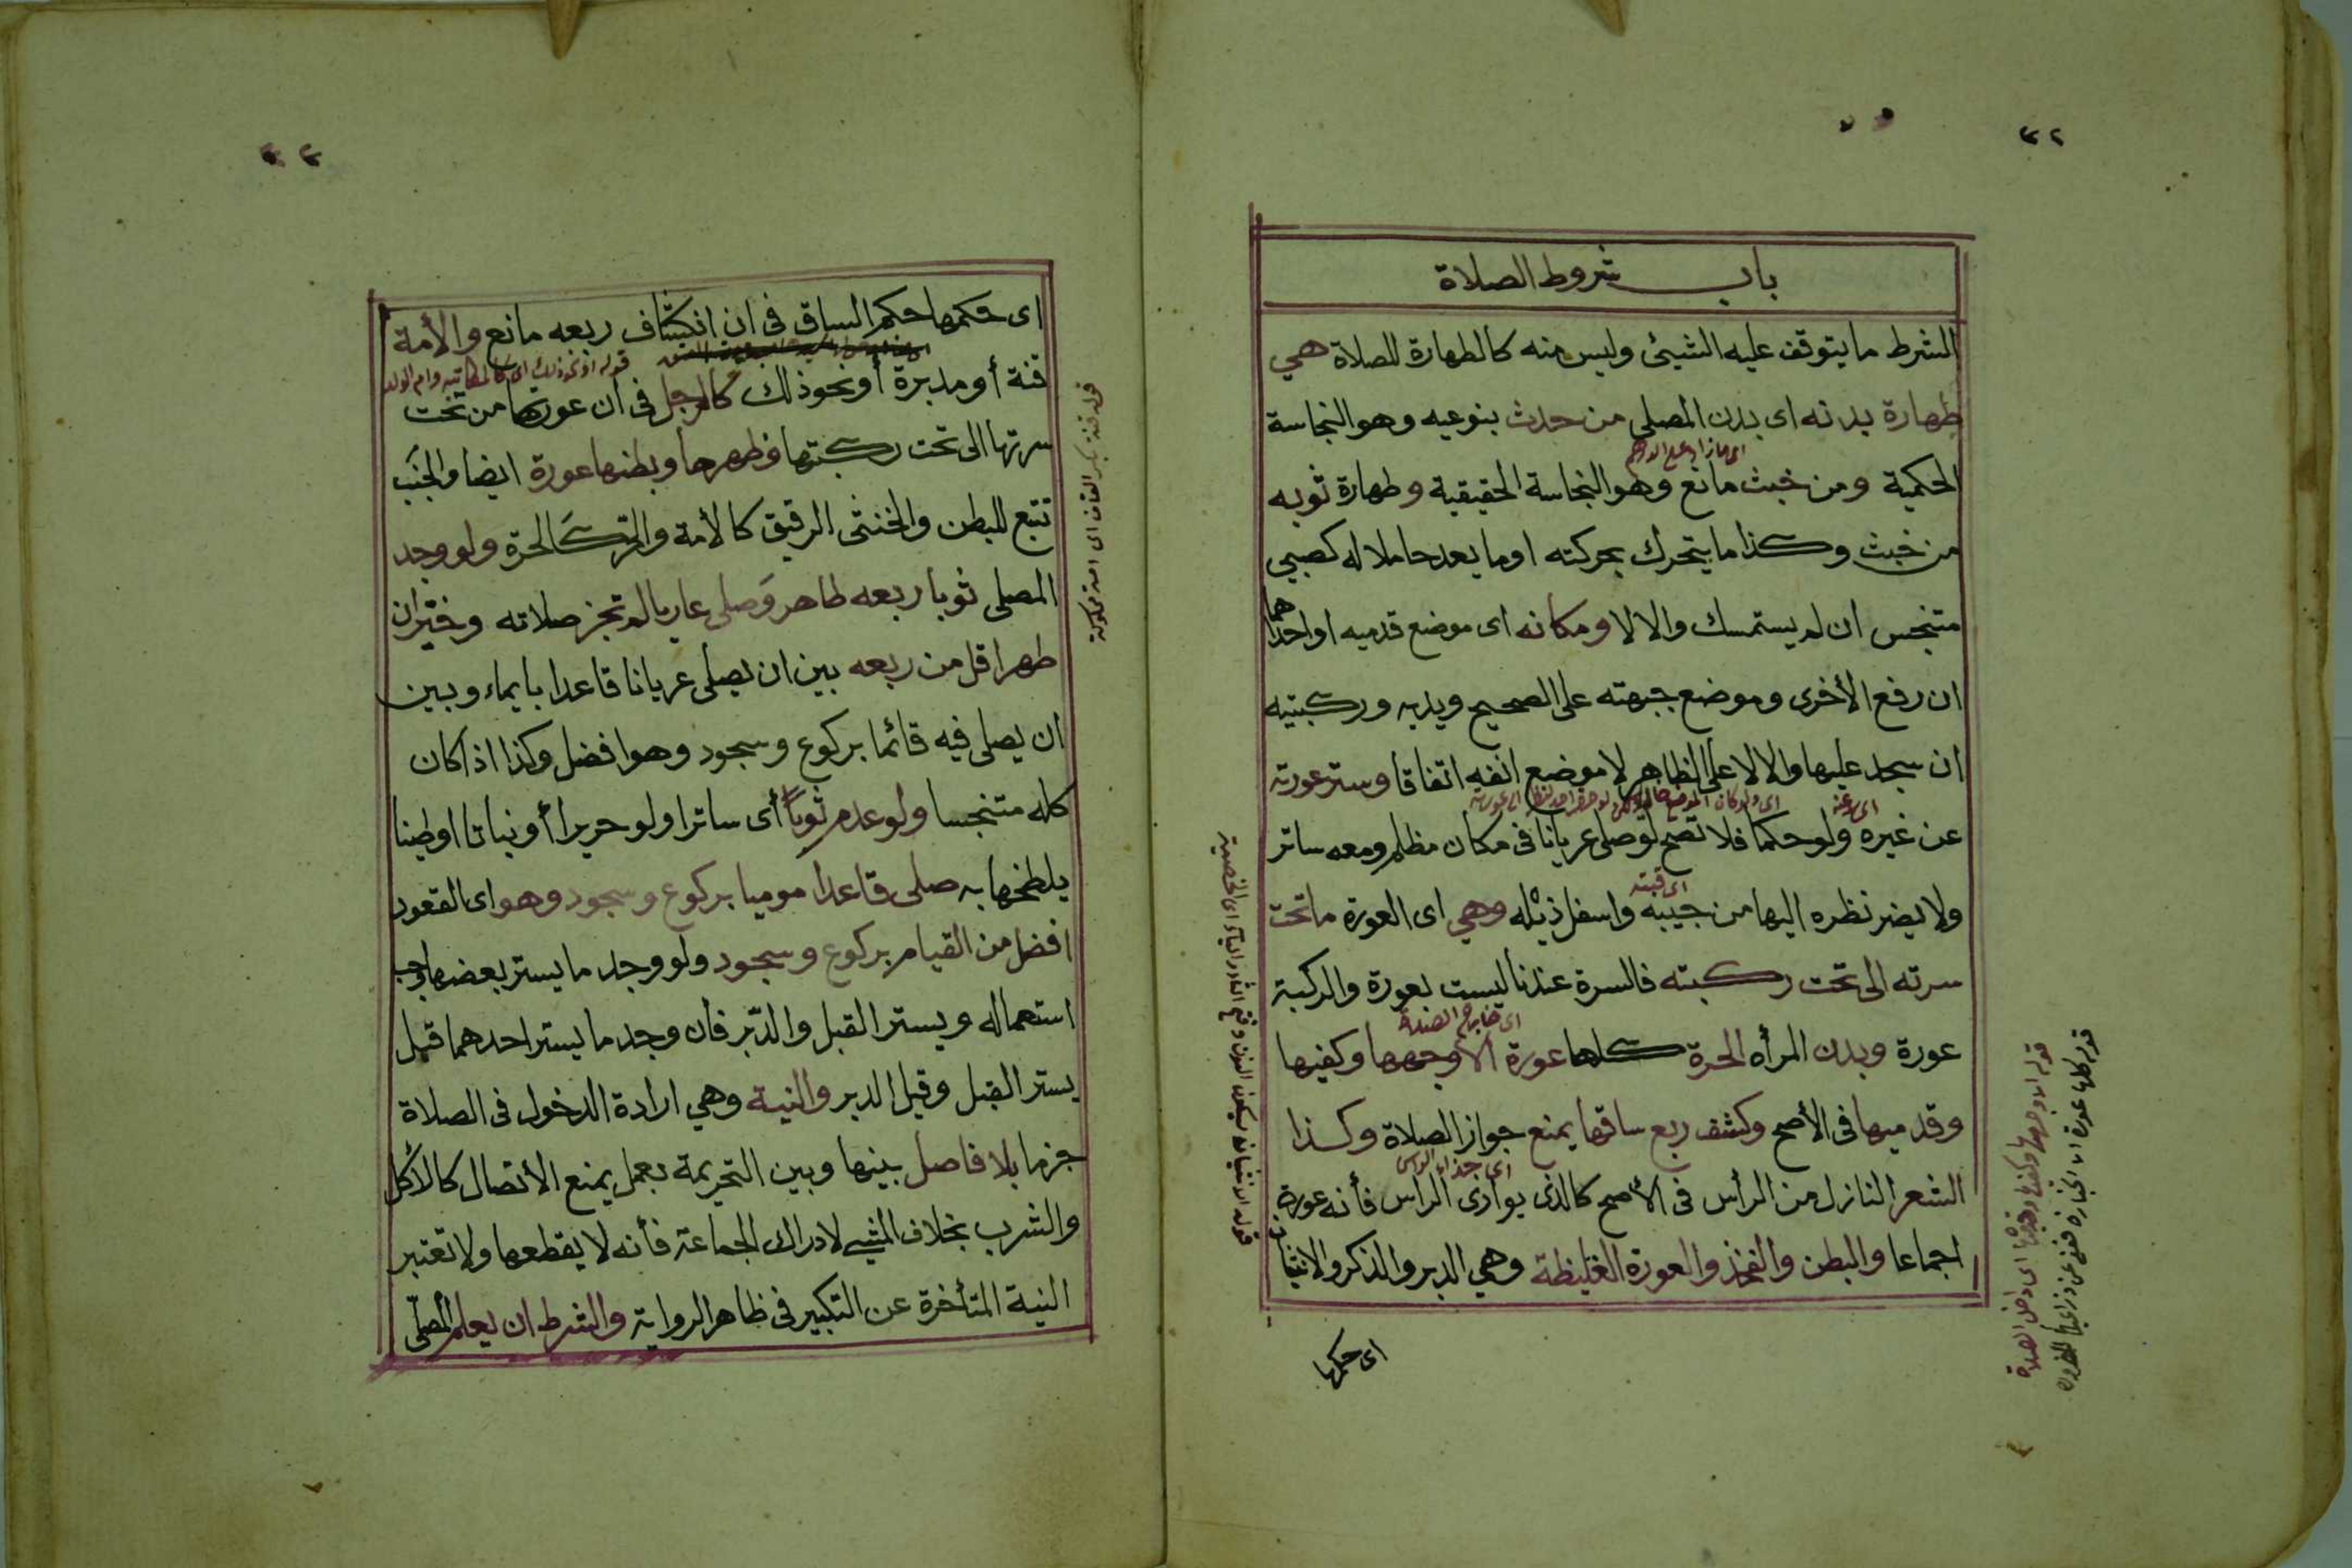 ٤٢
باب شروط الصلاة
الشرط ما يتوقف عليه الشيئ وليس منه كالطهارة للصلاة هي
طهارة بدنه اى بدن المصلى من حدث بنوعيه وهو النجاسة
اى ما زاد على الدرهم
الحكمية ومن خبث مانع وهو النجاسة الحقيقية وطهارة ثوبه
من خبث وكذا ما يتحرك بحركته او ما يعد حاملا له كصبي
متنجس ان لم يستمسك والا لا ومكانه اى موضع قدميه او احداهما
ان رفع الأخرى وموضع جبهته على الصحيح ويديه وركبتيه
ان سجد عليها والا لا على الظاهر لا موضع انفه اتفاقا وستر عورته
عن غيره ولو حكما فلا تصح لو صلى عريانا فى مكان مظلم ومعه ساتر
اى قبته
ولا يضر نظره اليها من جيبه واسفل ذيله وهي اى العورة ما تحت
سرته الى تحت ركبته فالسرة عندنا ليست بعورة والركبة
اى خارج الصلاة
عورة وبدن المرأه الحرة كلها عورة الا وجهها وكفيها
وقدميها فى الأصح وكشف ربع ساقها يمنع جواز الصلاة وكذا
اى حذاء الراس
الشعر النازل من الرأس فى الأصح كالذى يوازى الراس فأنه عورة
اجماعا والبطن والفخذ والعورة الغليظة وهي الدبر والذكر والانثيان
اى حكمها
قوله الا وجهها وكفيها وقدميها اى داخل الصلاة
اى حكمها حكم الساق فى ان انكشاف ربعه مانع والأمة
قوله او نحو ذلك اى كالمكاتبه وام الولد
قنة أو مدبرة أو نحو ذالك كالرجل فى ان عورتها من تحت
سرتها الى تحت ركبتها وظهرها وبطنها عورة ايضا والجنب
تتبع للبطن والخنثى الرقيق كالأمة والحر كالحرة ولو وجد
المصلى ثوبا ربعه طاهر وصلى عاريا لم تجز صلاته وخير ان
طهر اقل من ربعه بين ان يصلى عريانا قاعدا بايماء وبين
ان يصلى فيه قائما بركوع وسجود وهو افضل وكذا اذا كان
كله متنجسا ولو عدم ثوبا أى ساترا ولو حريرا أو نباتا او طينا
يلطخها به صلى قاعدا موميا بركوع وسجود وهو اى القعود
افضل من القيام بركوع وسجود ولو وجد ما يستر بعضها وجب
استعماله ويستر القبل والدبر فان وجد ما يستر احدهما قيل
يستر القبل وقيل الدبر والنية وهي ارادة الدخول فى الصلاة
جزما بلا فاصل بينها وبين التحريمة بعمل يمنع الأتصال كالأكل
والشرب بخلاف المشي لادراك الجماعة فأنه لا يقطعها ولا تعتبر
النية المتأخرة عن التكبير فى ظاهر الرواية والشرط ان يعلم المصلى